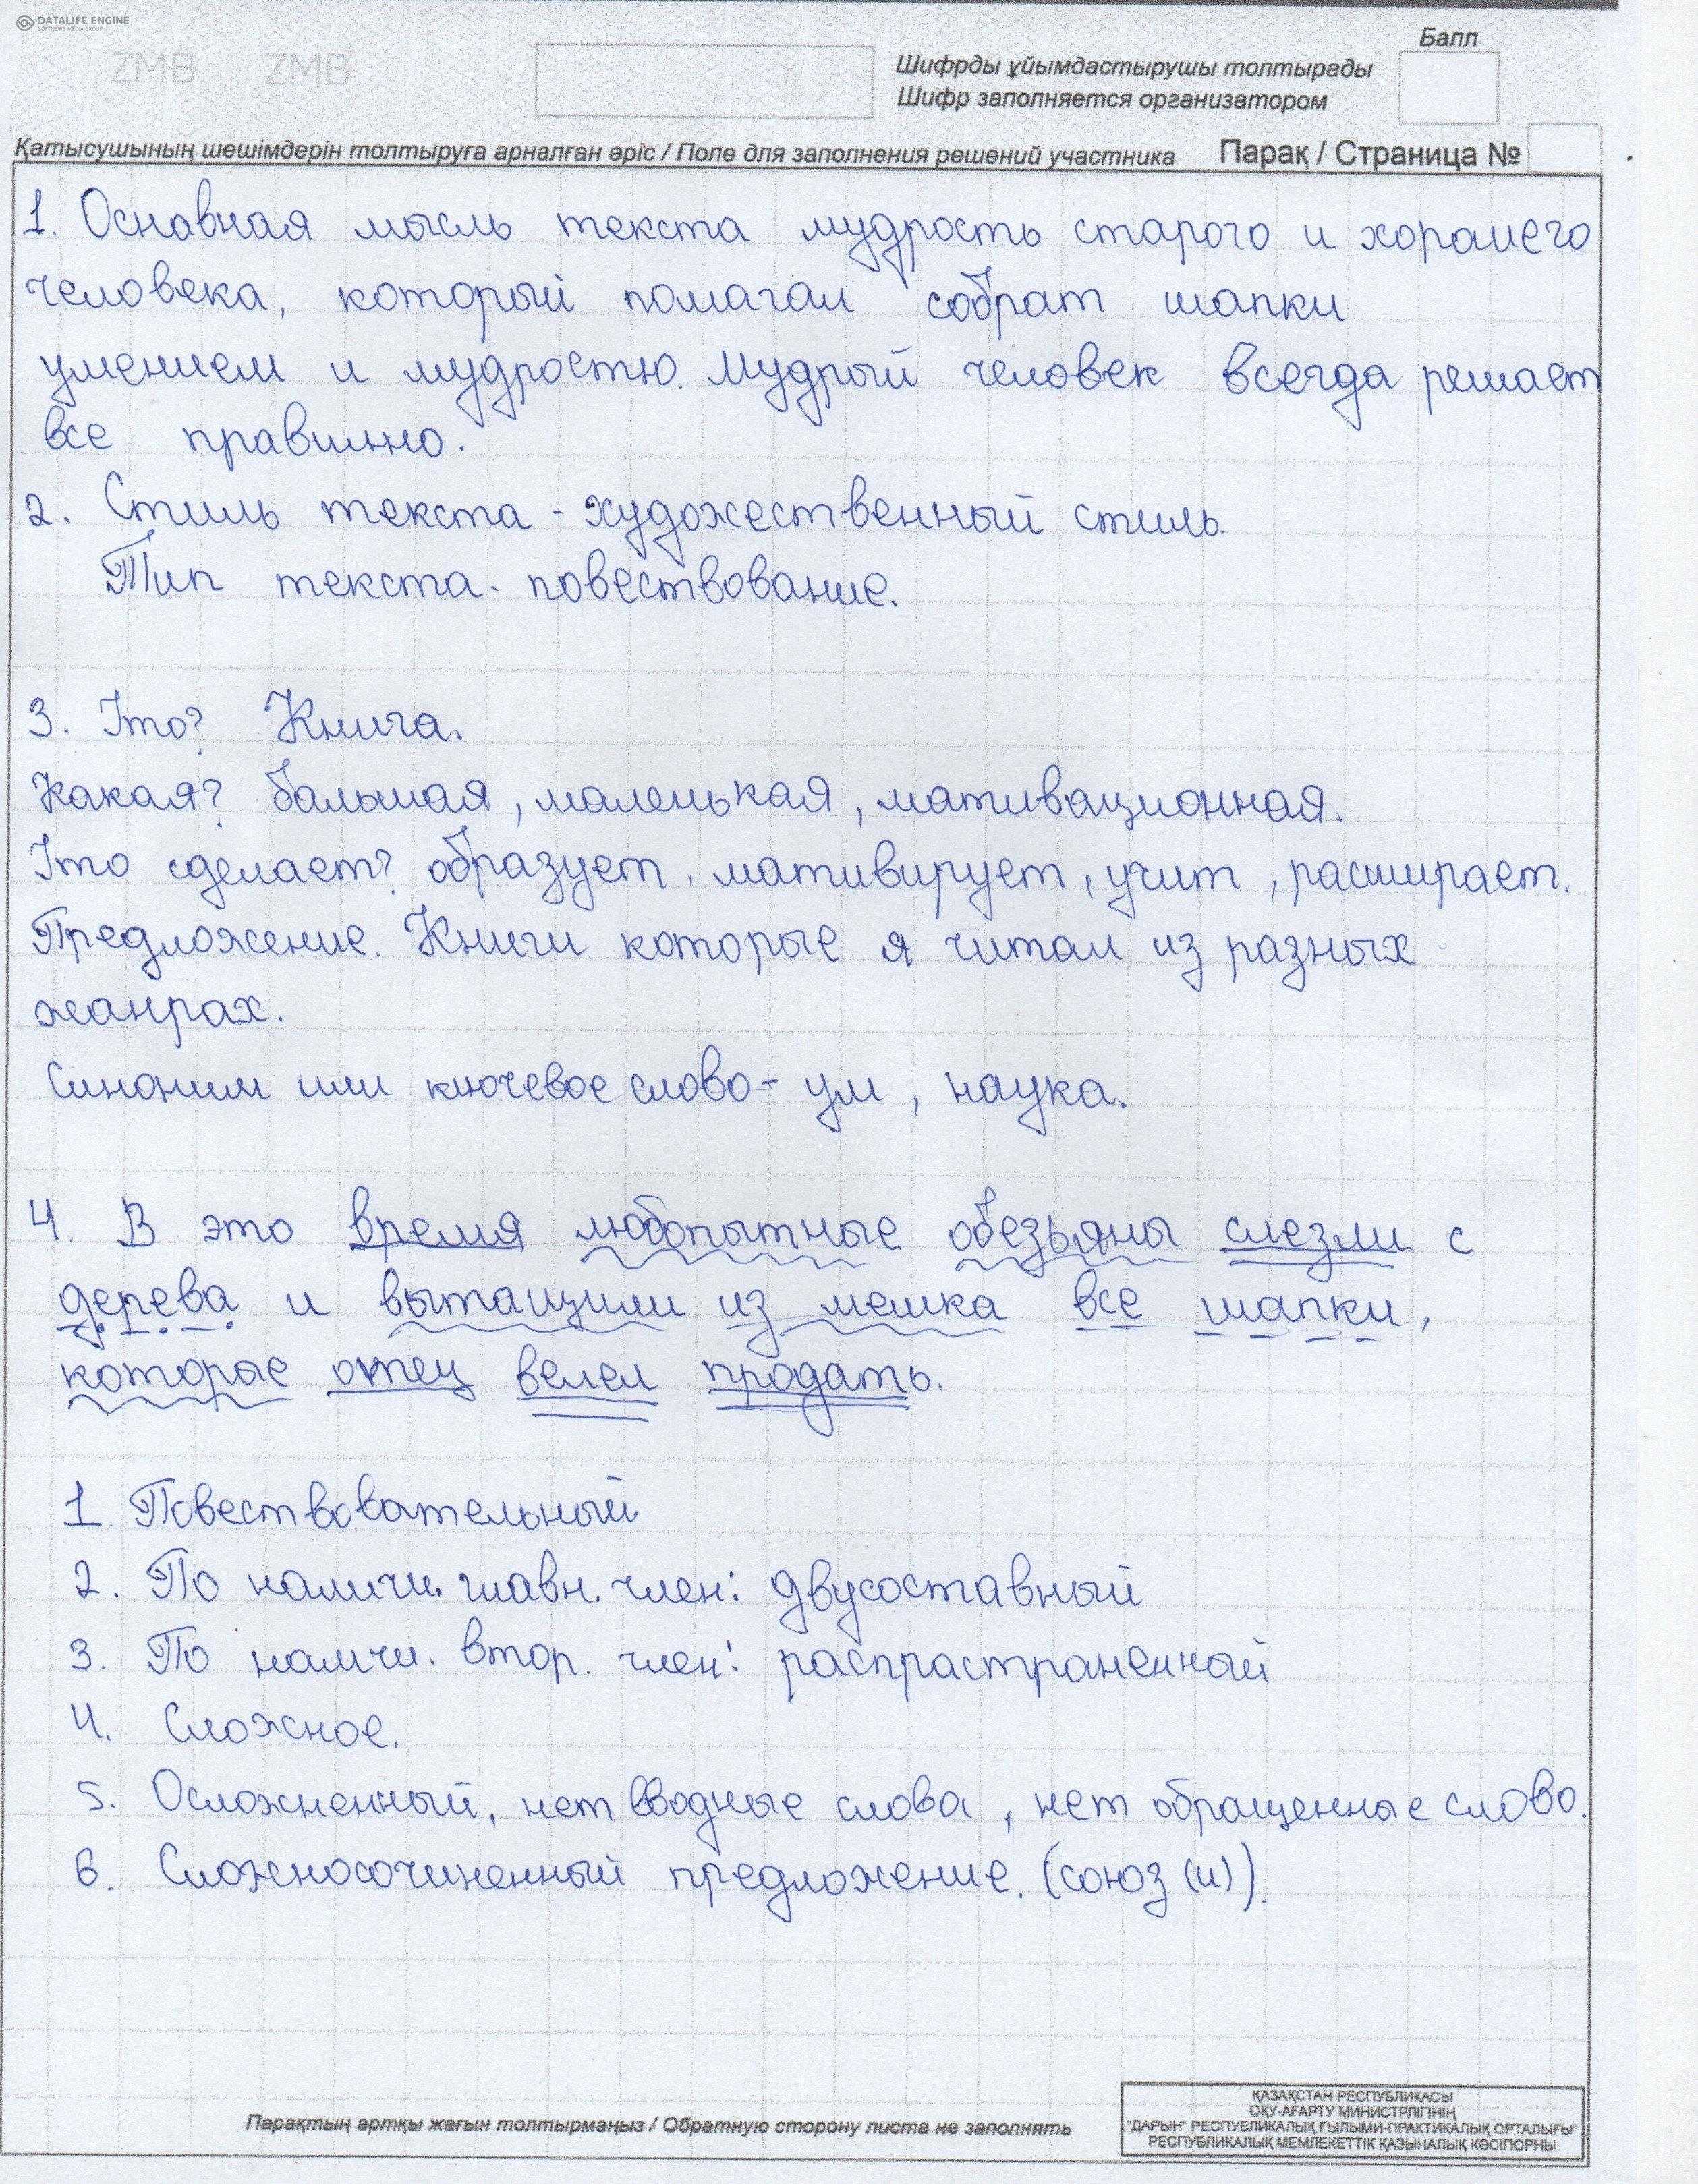 DATALIFE ENGINE
SOFTNEWS MEDIA GROUP
ZMB ZMB
Балл
Шифрды ұйымдастырушы толтырады
Шифр заполняется организатором
Қатысушының шешімдерін толтыруға арналған өріс / Поле для заполнения решений участника Парақ / Страница №
1. Основная мысль текста мудрость старого и хорошего
человека, который помагал собрат шапки
умением и мудростю. Мудрый человек всегда решает
все правилно.
2. Стиль текста - художественный стиль.
Тип текста - повествование.
3. Что? Книга.
Какая? балышая, маленькая, мативационная.
Что сделает? образует, мативирует, учит, расширает.
Предложение. Книги которые я читал из разных
жанрах.
Синоним или ключевое слово - ум, наука.
4. В это время любопытные обезьяны слезли с
дерева и вытащили из мешка все шапки,
которые отец велел продать.
1. Повествовательный
2. По наличи. главн. член: двусоставный
3. По наличи. втор. член: распрастраненный
4. Сложное.
5. Осложненный, нет вводные слова, нет обращенные слово.
6. Сложносочиненный предложение. (союз (и)).
Парақтың артқы жағын толтырмаңыз / Обратную сторону листа не заполнять
ҚАЗАҚСТАН РЕСПУБЛИКАСЫ
ОҚУ-АҒАРТУ МИНИСТРЛІГІНІҢ
"ДАРЫН" РЕСПУБЛИКАЛЫҚ ҒЫЛЫМИ-ПРАКТИКАЛЫҚ ОРТАЛЫҒЫ"
РЕСПУБЛИКАЛЫҚ МЕМЛЕКЕТТІК ҚАЗЫНАЛЫҚ КӘСІПОРНЫ